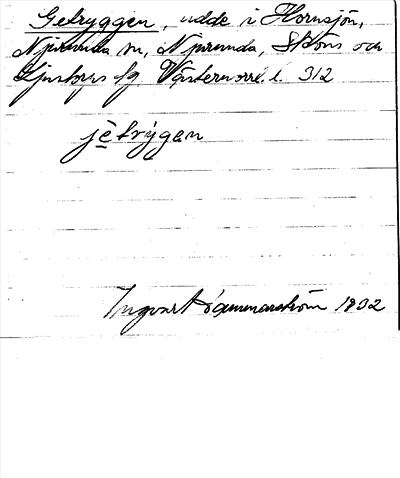 Getryggen, udde i Hornsjön,
Njurunda sn, Njurunda, Sköns och
Ljustorps tg Västernorrl. l. 312
jètrýgen
Ingvart Hammarström 1932